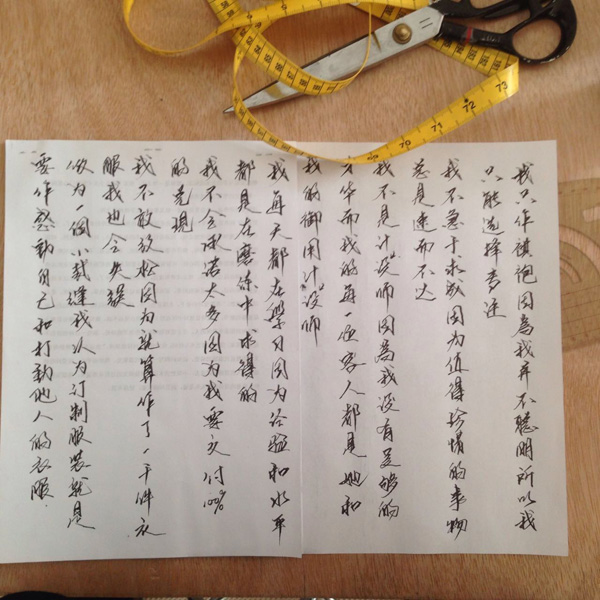 我只作旗袍因為我并不聰明所以我
只能选择专注
我不急于求成因为值得珍惜的事物
总是速而不达
我不是计设师因為我没有足够的
才华而我的每一位客人都是她和
我的御用计设师
我每天都在學习因为经验和水平
都是在磨练中求得的
我不会承诺太多因为我要交付100%
的兑現
我不敢放松因为就算作了一千件衣
服我也会失误
做为一個小裁缝我认为订制服装就是
要作感動自己和打動他人的衣服.
73
72
71
70